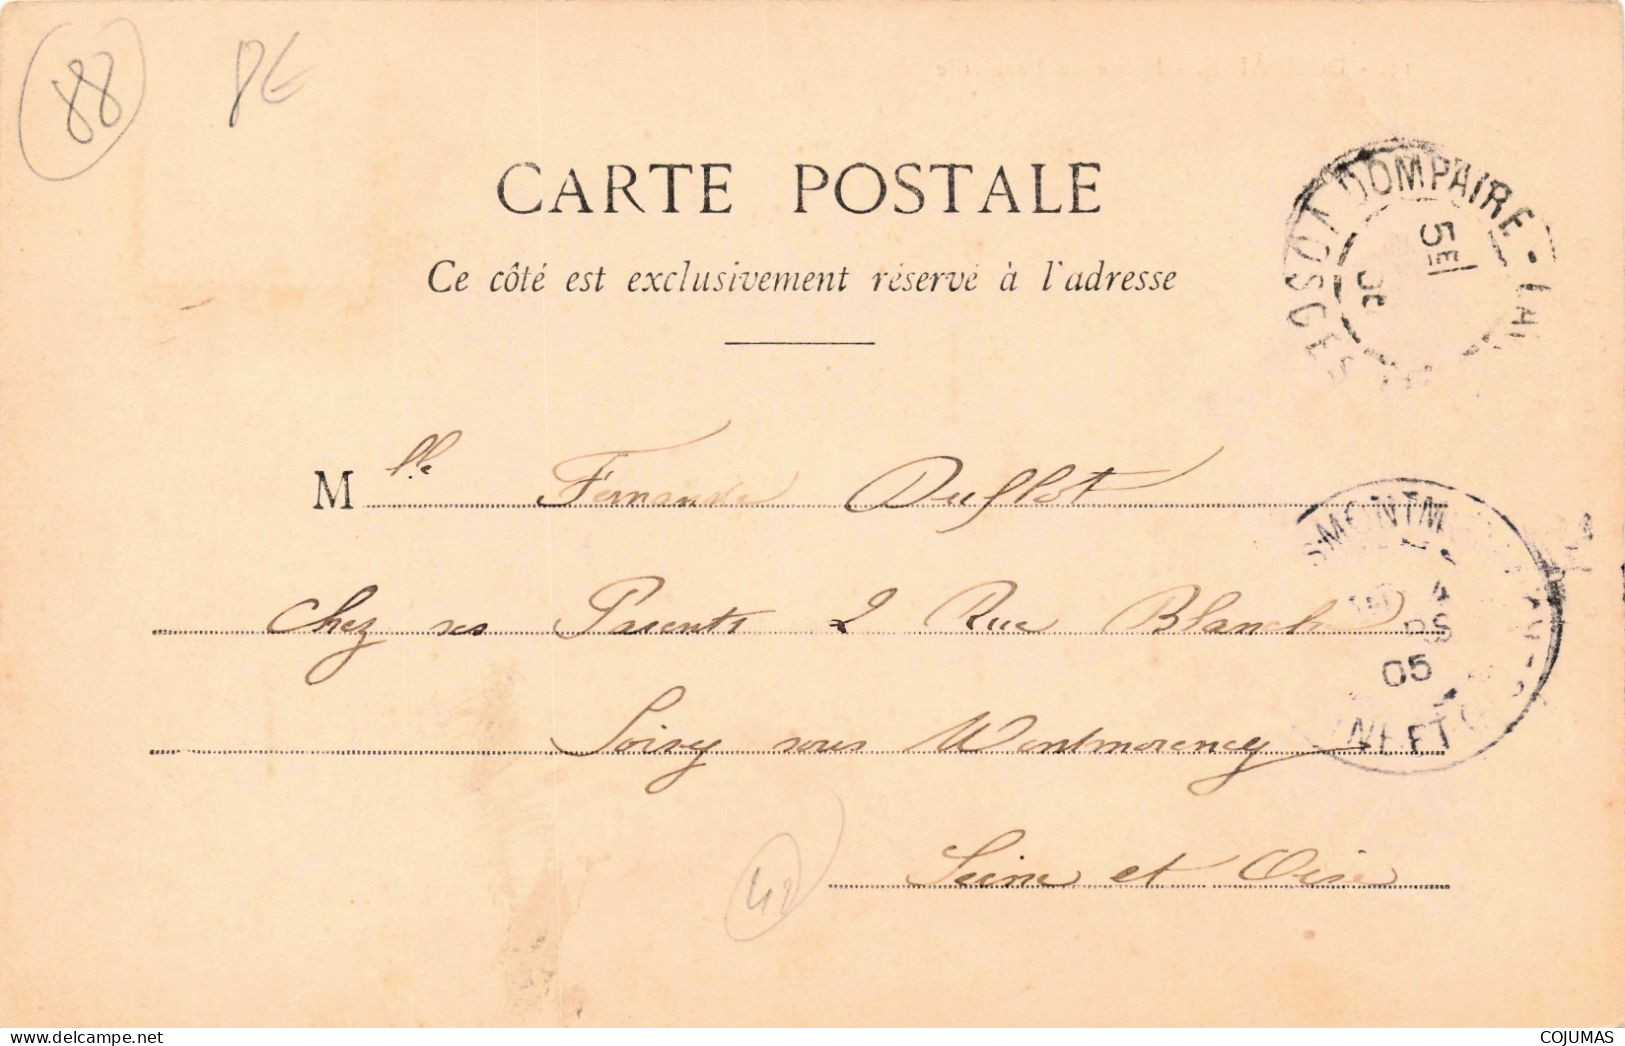 88 PE
CARTE POSTALE
Ce côté est exclusivement réservé à l'adresse
DOMPAIRE - LA
VOSGES
5E
05
Mlle Fernande Duflot
Chez ses Parents 2 Rue Blanche
Soisy sous Montmorency
Seine et Oise
SMONTM
4
05
INE ET
42
COJUMAS